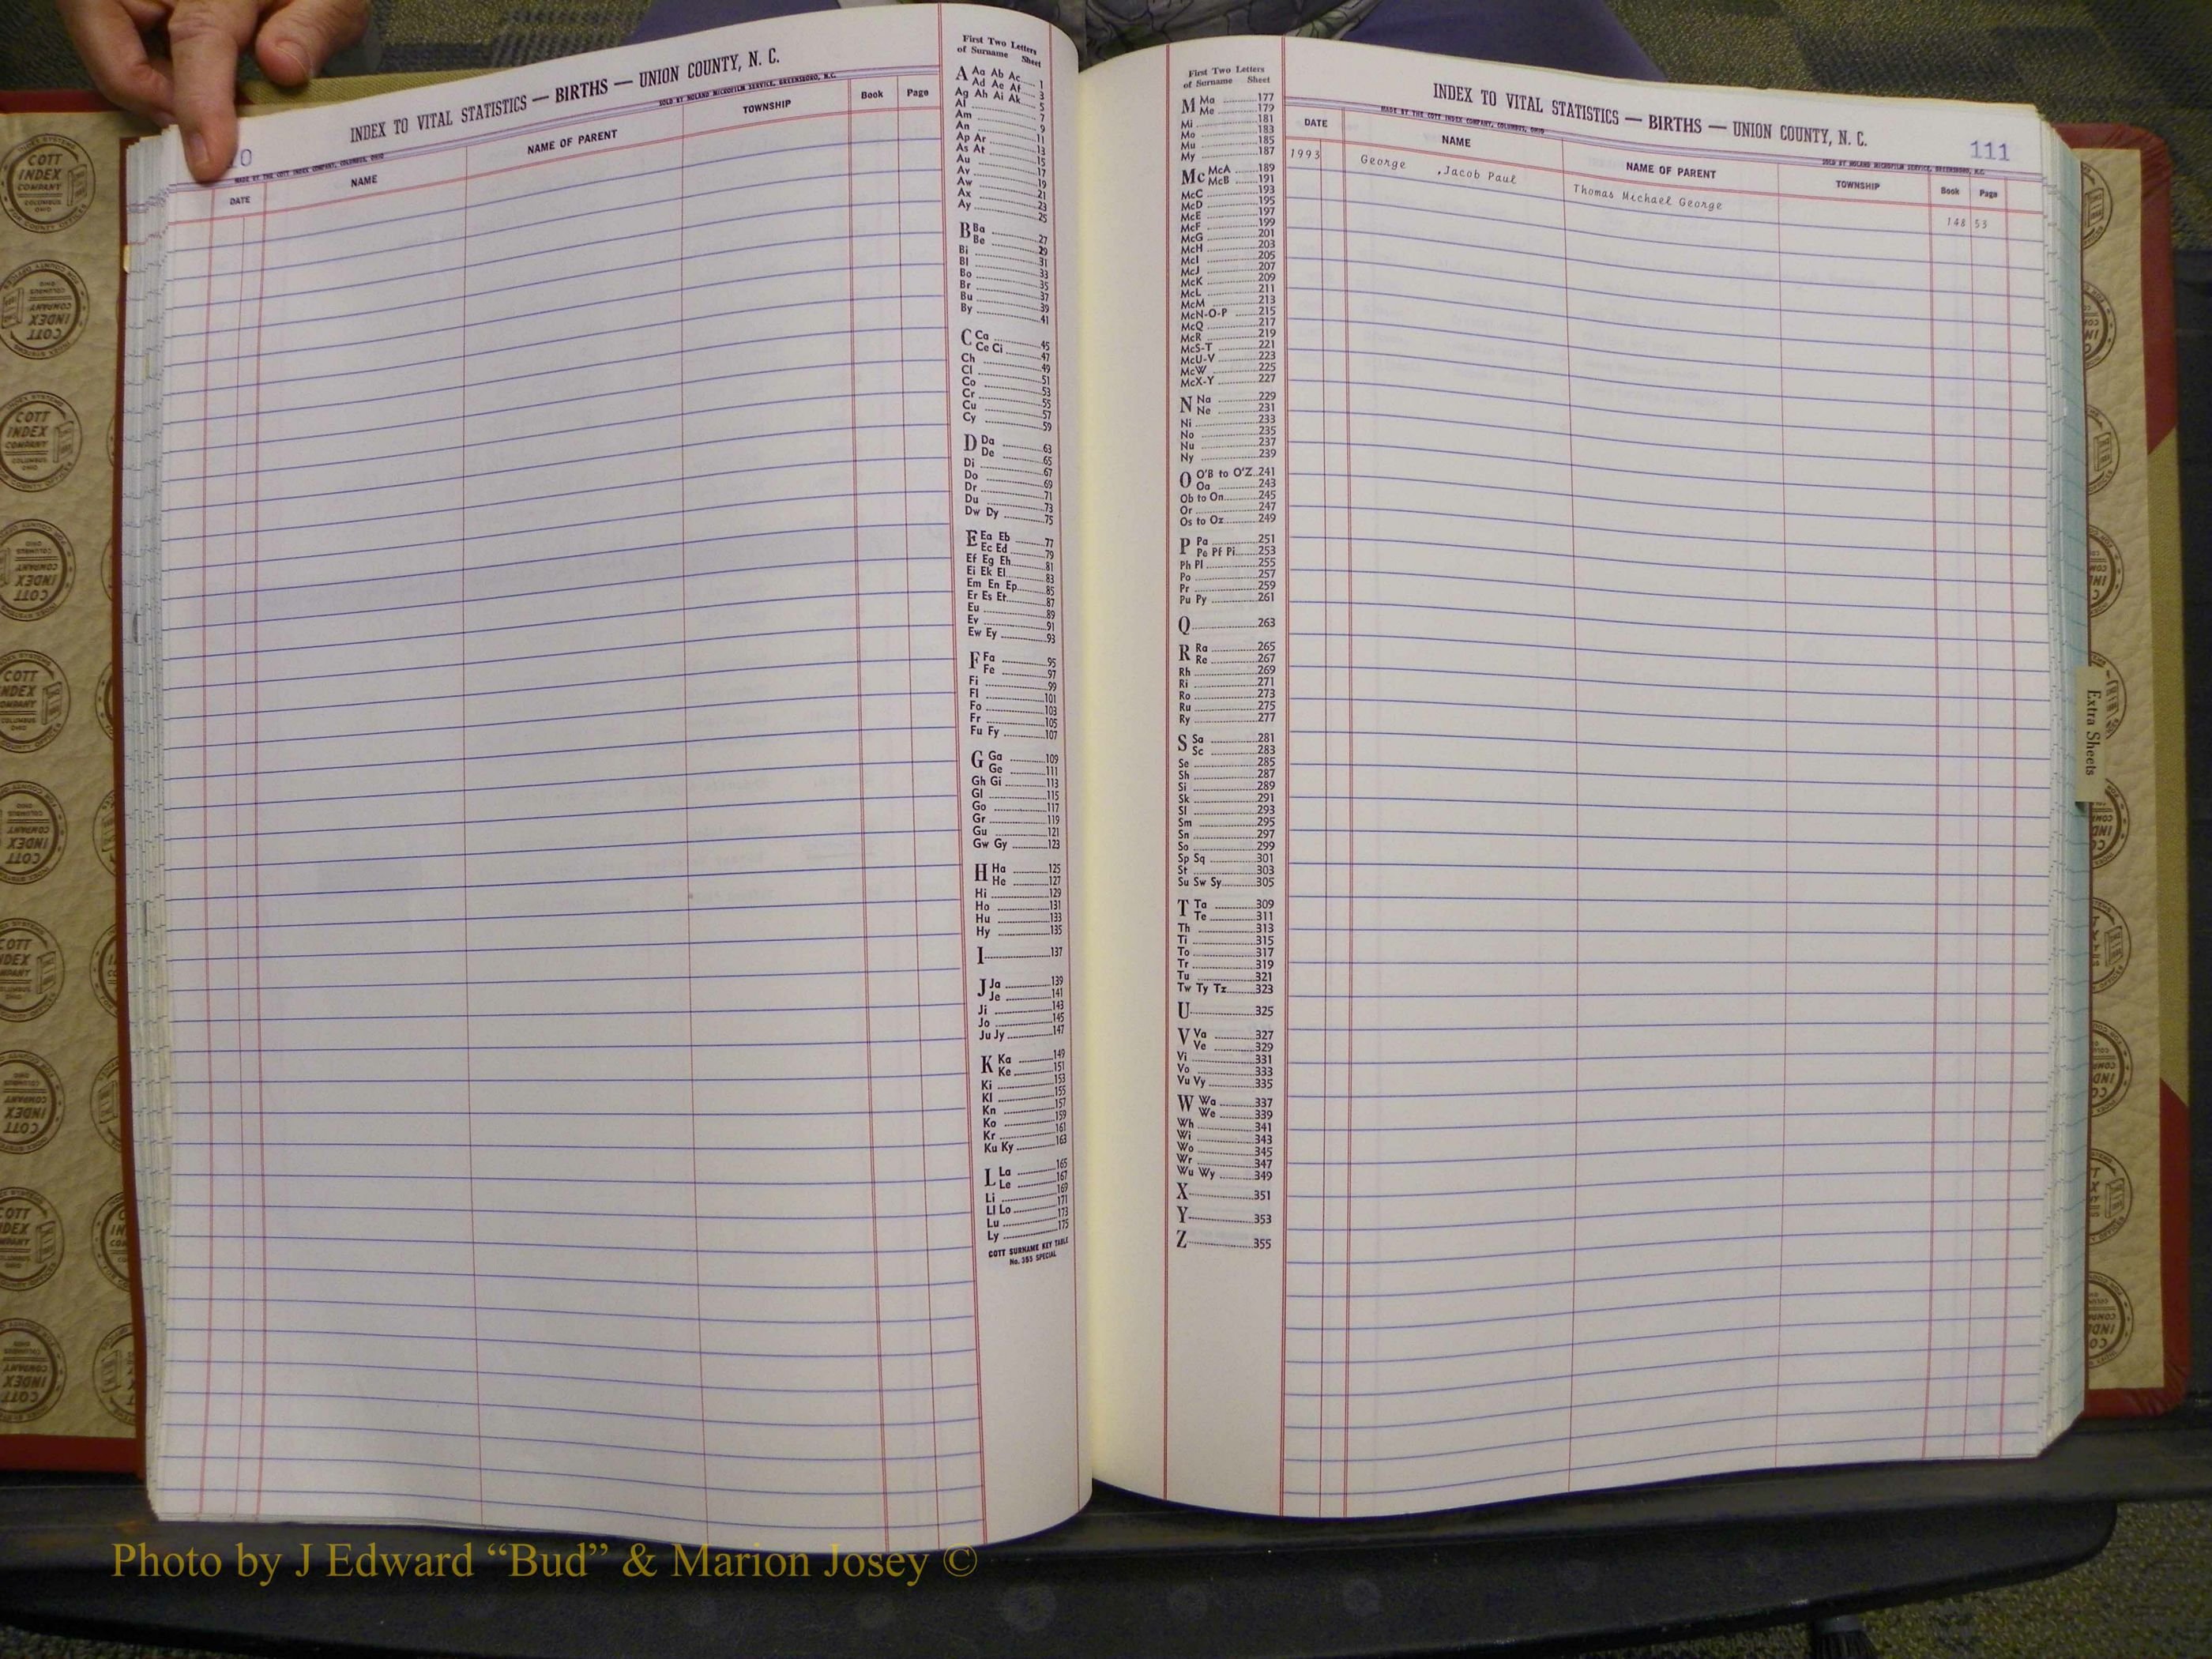 INDEX TO VITAL STATISTICS — BIRTHS — UNION COUNTY, N. C.
MADE BY THE COTT INDEX COMPANY, COLUMBUS, OHIO
SOLD BY NOLAND MICROFILM SERVICE, GREENSBORO, N.C.
DATE NAME NAME OF PARENT TOWNSHIP Book Page
First Two Letters
of Surname Sheet
A Aa Ab Ac 1
Ad Ae Af 3
Ag Ah Ai Ak 5
Al 7
Am 9
An 11
Ap Ar 13
As At 15
Au 17
Av 19
Aw 21
Ax 23
Ay 25
B Ba 27
Be 29
Bi 31
Bl 33
Bo 35
Br 37
Bu 39
By 41
C Ca 45
Ce Ci 47
Ch 49
Cl 51
Co 53
Cr 55
Cu 57
Cy 59
D Da 63
De 65
Di 67
Do 69
Dr 71
Du 73
Dw Dy 75
E Ea Eb 77
Ec Ed 79
Ef Eg Eh 81
Ei Ek El 83
Em En Ep 85
Er Es Et 87
Eu 89
Ev 91
Ew Ey 93
F Fa 95
Fe 97
Fi 99
Fl 101
Fo 103
Fr 105
Fu Fy 107
G Ga 109
Ge 111
Gh Gi 113
Gl 115
Go 117
Gr 119
Gu 121
Gw Gy 123
H Ha 125
He 127
Hi 129
Ho 131
Hu 133
Hy 135
I 137
J Ja 139
Je 141
Ji 143
Jo 145
Ju Jy 147
K Ka 149
Ke 151
Ki 153
Kl 155
Kn 157
Ko 159
Kr 161
Ku Ky 163
L La 165
Le 167
Li 169
Ll Lo 171
Lu 173
Ly 175
COTT SURNAME KEY TABLE
No. 355 SPECIAL
First Two Letters
of Surname Sheet
M Ma 177
Me 179
Mi 181
Mo 183
Mu 185
My 187
Mc McA 189
McB 191
McC 193
McD 195
McE 197
McF 199
McG 201
McH 203
McI 205
McJ 207
McK 209
McL 211
McM 213
McN-O-P 215
McQ 217
McR 219
McS-T 221
McU-V 223
McW 225
McX-Y 227
N Na 229
Ne 231
Ni 233
No 235
Nu 237
Ny 239
O O'B to O'Z 241
Oa 243
Ob to On 245
Or 247
Os to Oz 249
P Pa 251
Pe Pf Pi 253
Ph Pl 255
Po 257
Pr 259
Pu Py 261
Q 263
R Ra 265
Re 267
Rh 269
Ri 271
Ro 273
Ru 275
Ry 277
S Sa 281
Sc 283
Se 285
Sh 287
Si 289
Sk 291
Sl 293
Sm 295
Sn 297
So 299
Sp Sq 301
St 303
Su Sw Sy 305
T Ta 309
Te 311
Th 313
Ti 315
To 317
Tr 319
Tu 321
Tw Ty Tz 323
U 325
V Va 327
Ve 329
Vi 331
Vo 333
Vu Vy 335
W Wa 337
We 339
Wh 341
Wi 343
Wo 345
Wr 347
Wu Wy 349
X 351
Y 353
Z 355
INDEX TO VITAL STATISTICS — BIRTHS — UNION COUNTY, N. C.
111
MADE BY THE COTT INDEX COMPANY, COLUMBUS, OHIO
SOLD BY NOLAND MICROFILM SERVICE, GREENSBORO, N.C.
DATE NAME NAME OF PARENT TOWNSHIP Book Page
1993 George ,Jacob Paul Thomas Michael George 148 53
Extra Sheets
COTT
INDEX
COMPANY
COLUMBUS
OHIO
Photo by J Edward “Bud” & Marion Josey ©